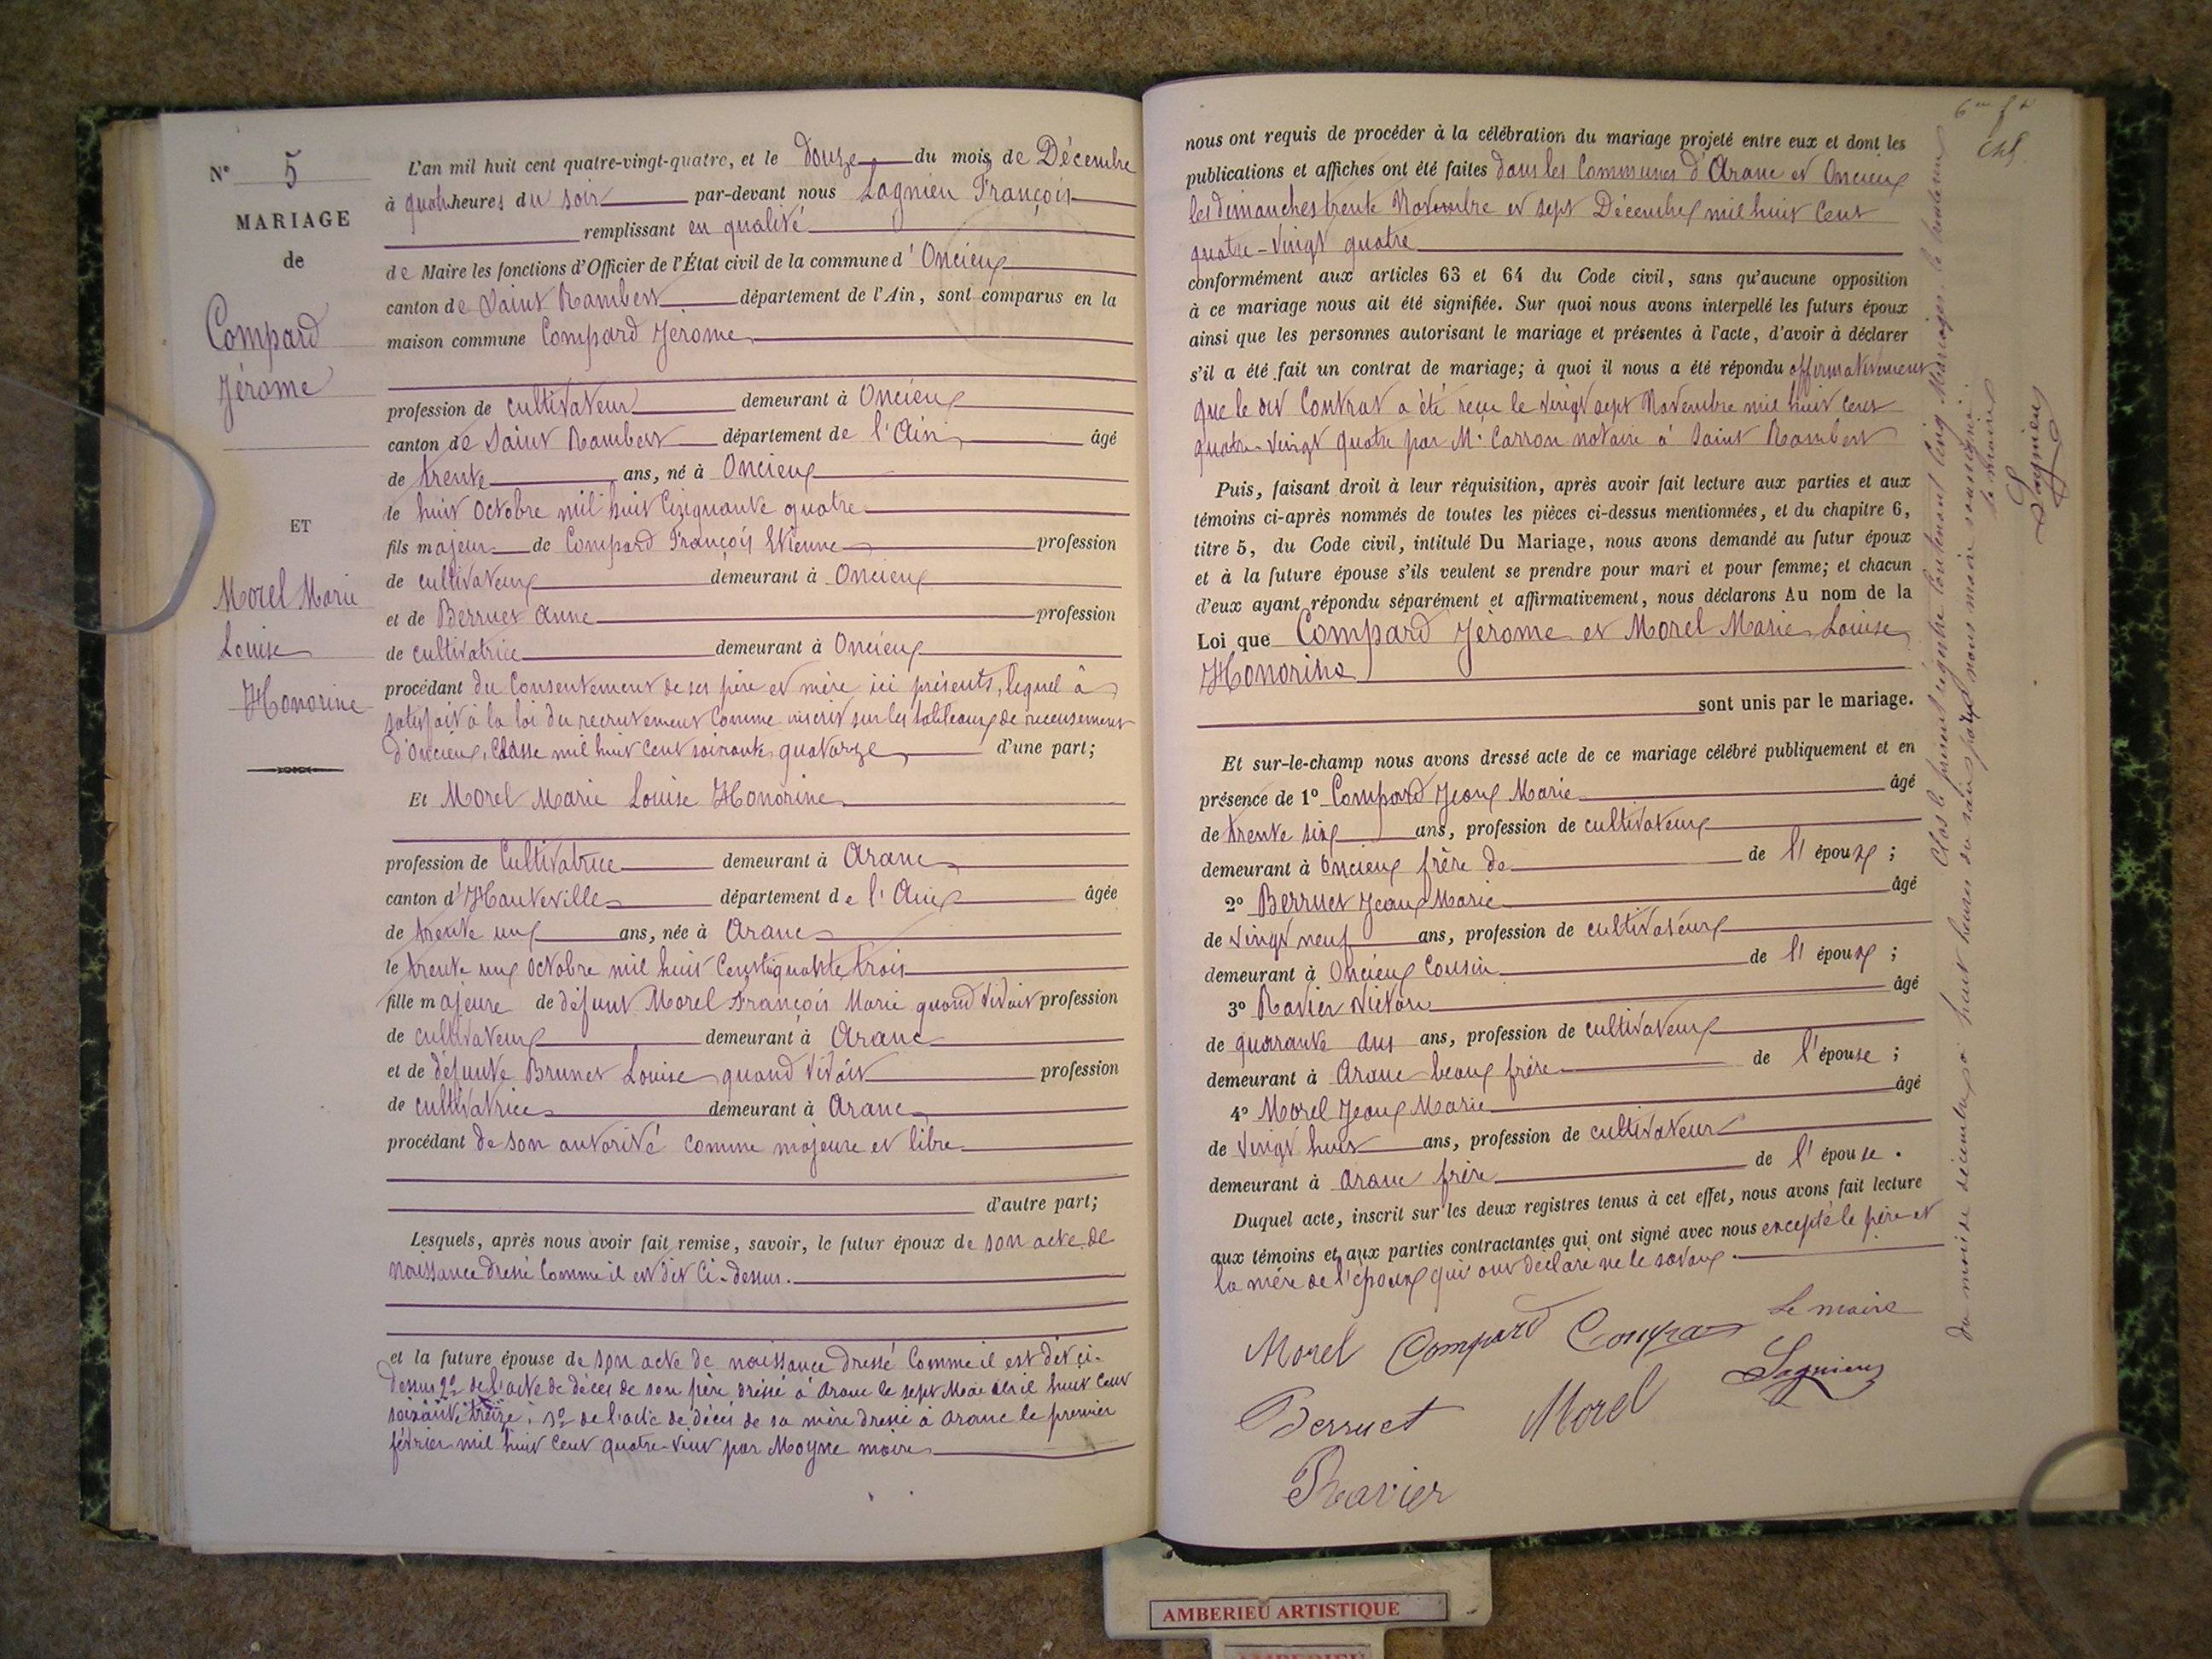 N° 5
MARIAGE
de
Compard
Jérome
ET
Morel Marie
Louise
Honorine
L'an mil huit cent quatre-vingt-quatre, et le douze du mois de Décembre
à quatre heures du soir par-devant nous Lagnieu François
remplissant en qualité
de Maire les fonctions d'Officier de l'État civil de la commune d'Oncieux
canton de Saint Rambert département de l'Ain, sont comparus en la
maison commune Compard Jérome
profession de cultivateur demeurant à Oncieux
canton de Saint Rambert département de l'Ain âgé
de trente ans, né à Oncieux
le huit Octobre mil huit cinquante quatre
fils majeur de Compard François Etienne profession
de cultivateur demeurant à Oncieux
et de Berruet Anne profession
de cultivatrice demeurant à Oncieux
procédant du consentement de ses père et mère ici présents, lequel à
satisfait à la loi du recrutement comme inscrit sur les tableaux de recensement
d'Oncieux, Classe mil huit cent soixante quatorze d'une part;
Et Morel Marie Louise Honorine
profession de Cultivatrice demeurant à Aranc
canton d'Hauteville département de l'Ain âgée
de trente un ans, née à Aranc
le trente un Octobre mil huit cent cinquante trois
fille majeure de défunt Morel François Marie quand vivait profession
de cultivateur demeurant à Aranc
et de défunte Brunet Louise quand vivait profession
de cultivatrice demeurant à Aranc
procédant de son autorité comme majeure et libre
d'autre part;
Lesquels, après nous avoir fait remise, savoir, le futur époux de son acte de
naissance dressé comme il est dit ci-dessus.
et la future épouse de son acte de naissance dressé comme il est dit ci-
dessus 2° de l'acte de décès de son père dressé à Aranc le sept Mai mil huit cent
soixante treize; 3° de l'acte de décès de sa mère dressé à Aranc le premier
février mil huit cent quatre-vint par Moyne maire
nous ont requis de procéder à la célébration du mariage projeté entre eux et dont les
publications et affiches ont été faites dans les Communes d'Aranc et Oncieux
les dimanches trente Novembre et sept Décembre mil huit cent
quatre-vingt quatre
conformément aux articles 63 et 64 du Code civil, sans qu'aucune opposition
à ce mariage nous ait été signifiée. Sur quoi nous avons interpellé les futurs époux
ainsi que les personnes autorisant le mariage et présentes à l'acte, d'avoir à déclarer
s'il a été fait un contrat de mariage; à quoi il nous a été répondu affirmativement
que le dit Contrat a été reçu le vingt sept Novembre mil huit cent
quatre-vingt quatre par M. Carron notaire à Saint Rambert
Puis, faisant droit à leur réquisition, après avoir fait lecture aux parties et aux
témoins ci-après nommés de toutes les pièces ci-dessus mentionnées, et du chapitre 6,
titre 5, du Code civil, intitulé Du Mariage, nous avons demandé au futur époux
et à la future épouse s'ils veulent se prendre pour mari et pour femme; et chacun
d'eux ayant répondu séparément et affirmativement, nous déclarons Au nom de la
Loi que Compard Jérome et Morel Marie Louise
Honorine
sont unis par le mariage.
Et sur-le-champ nous avons dressé acte de ce mariage célébré publiquement et en
présence de 1° Compard Jean Marie âgé
de trente six ans, profession de cultivateur
demeurant à Oncieux frère de de l'époux ;
2° Berruet Jean Marie âgé
de vingt neuf ans, profession de cultivateur
demeurant à Oncieux Cousin de l'époux ;
3° Ravier Victor âgé
de quarante ans ans, profession de cultivateur
demeurant à Aranc beau frère de l'épouse ;
4° Morel Jean Marie âgé
de vingt huit ans, profession de cultivateur
demeurant à Aranc frère de l'épouse .
Duquel acte, inscrit sur les deux registres tenus à cet effet, nous avons fait lecture
aux témoins et aux parties contractantes qui ont signé avec nous excepté le père et
la mère de l'époux qui ont déclaré ne le savoir.
Morel Compard Compard Le maire
Berruet Morel Lagnieu
Ravier
Clos le présent registre contenant cinq Mariages le
du mois de décembre à huit heures du par nous maire soussigné.
Le maire
Lagnieu
AMBERIEU ARTISTIQUE
AMBERIEU